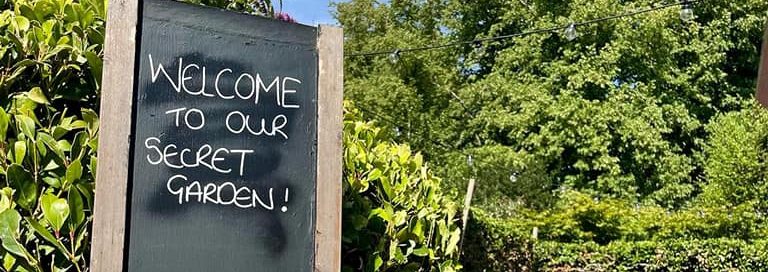 WELCOME
TO OUR
SECRET
GARDEN!